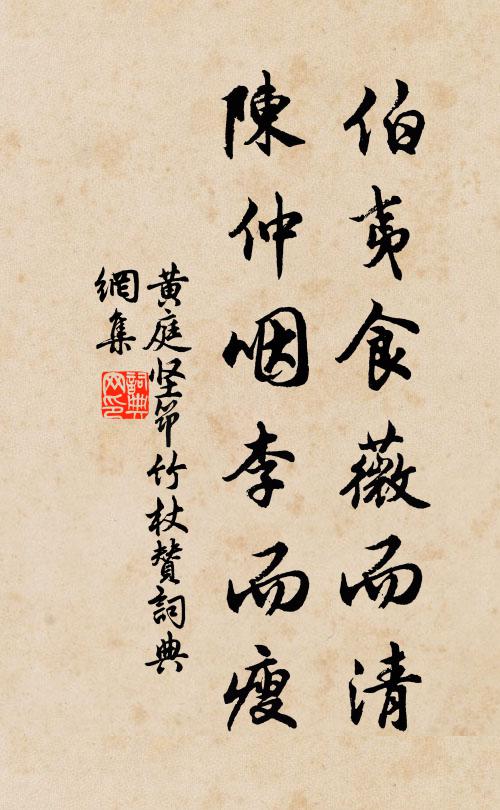 伯夷食薇而清
陳仲咽李而瘦
黄庭坚筇竹杖贊詞典
網集
詞典網印